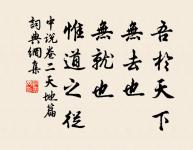 吾於天下
無去也
無就也
惟道之從
中说卷二天地篇
詞典網集